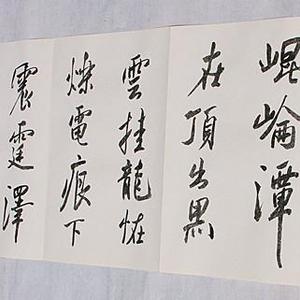 崐崘潭
在頂出黑
雲挂龍恠
爍電痕下
震霆澤